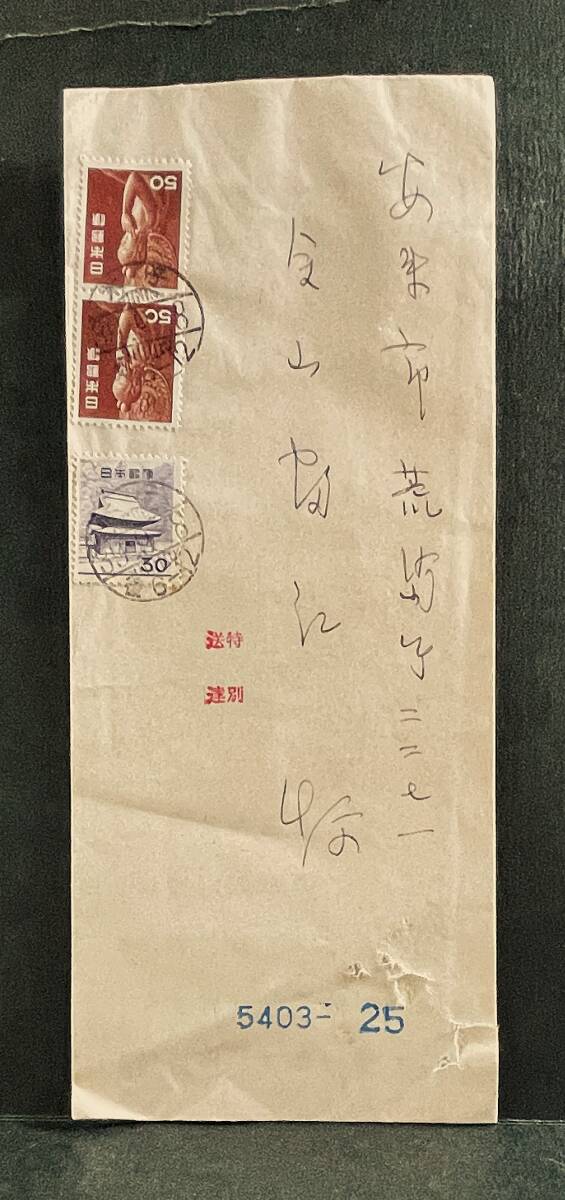 安来市荒島町二二七一
金山福江様
特別
送達
50
日本郵便
50
日本郵便
日本郵便
30
5403- 25